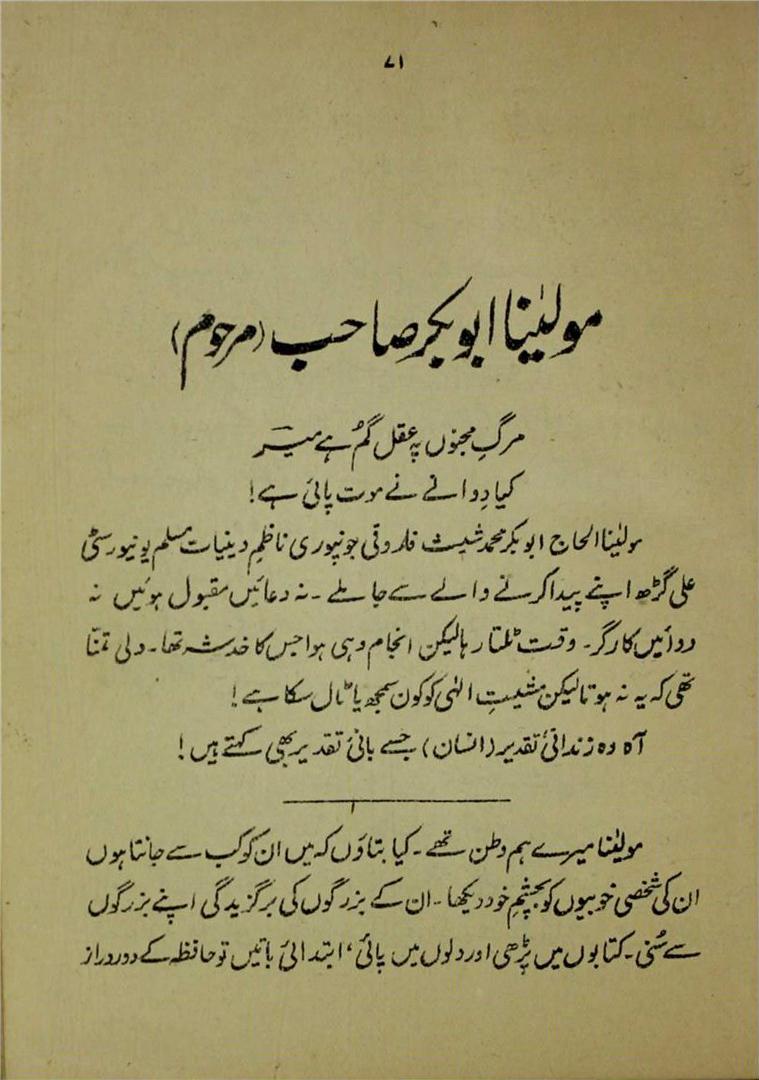 ۷۱
مولیٰنا ابوبکر صاحب (مرحوم)
مرگِ مجنوں پہ عقل گُم ہے میرؔ
کیا دِوانے نے موت پائی ہے!
مولیٰنا الحاج ابوبکر محمد شیث فاروقی جونپوری ناظمِ دینیات مسلم یونیورسٹی
علی گڑھ اپنے پیدا کرنے والے سے جا ملے ۔ نہ دعائیں مقبول ہوئیں نہ
دوائیں کارگر۔ وقت ٹلتا رہا لیکن انجام وہی ہوا جس کا خدشہ تھا۔ دلی تمنّا
تھی کہ یہ نہ ہوتا لیکن مشیتِ الٰہی کو کون سمجھ یا ٹال سکا ہے!
آہ وہ زندانیٔ تقدیر (انسان) جسے بانیٔ تقدیر بھی کہتے ہیں!
مولیٰنا میرے ہم وطن تھے ۔ کیا بتاؤں کہ میں ان کو کب سے جانتا ہوں
ان کی شخصی خوبیوں کو بچشمِ خود دیکھا ۔ ان کے بزرگوں کی برگزیدگی اپنے بزرگوں
سے سُنی ۔ کتابوں میں پڑھی اور دلوں میں پائی، ابتدائی باتیں تو حافظہ کے دور دراز